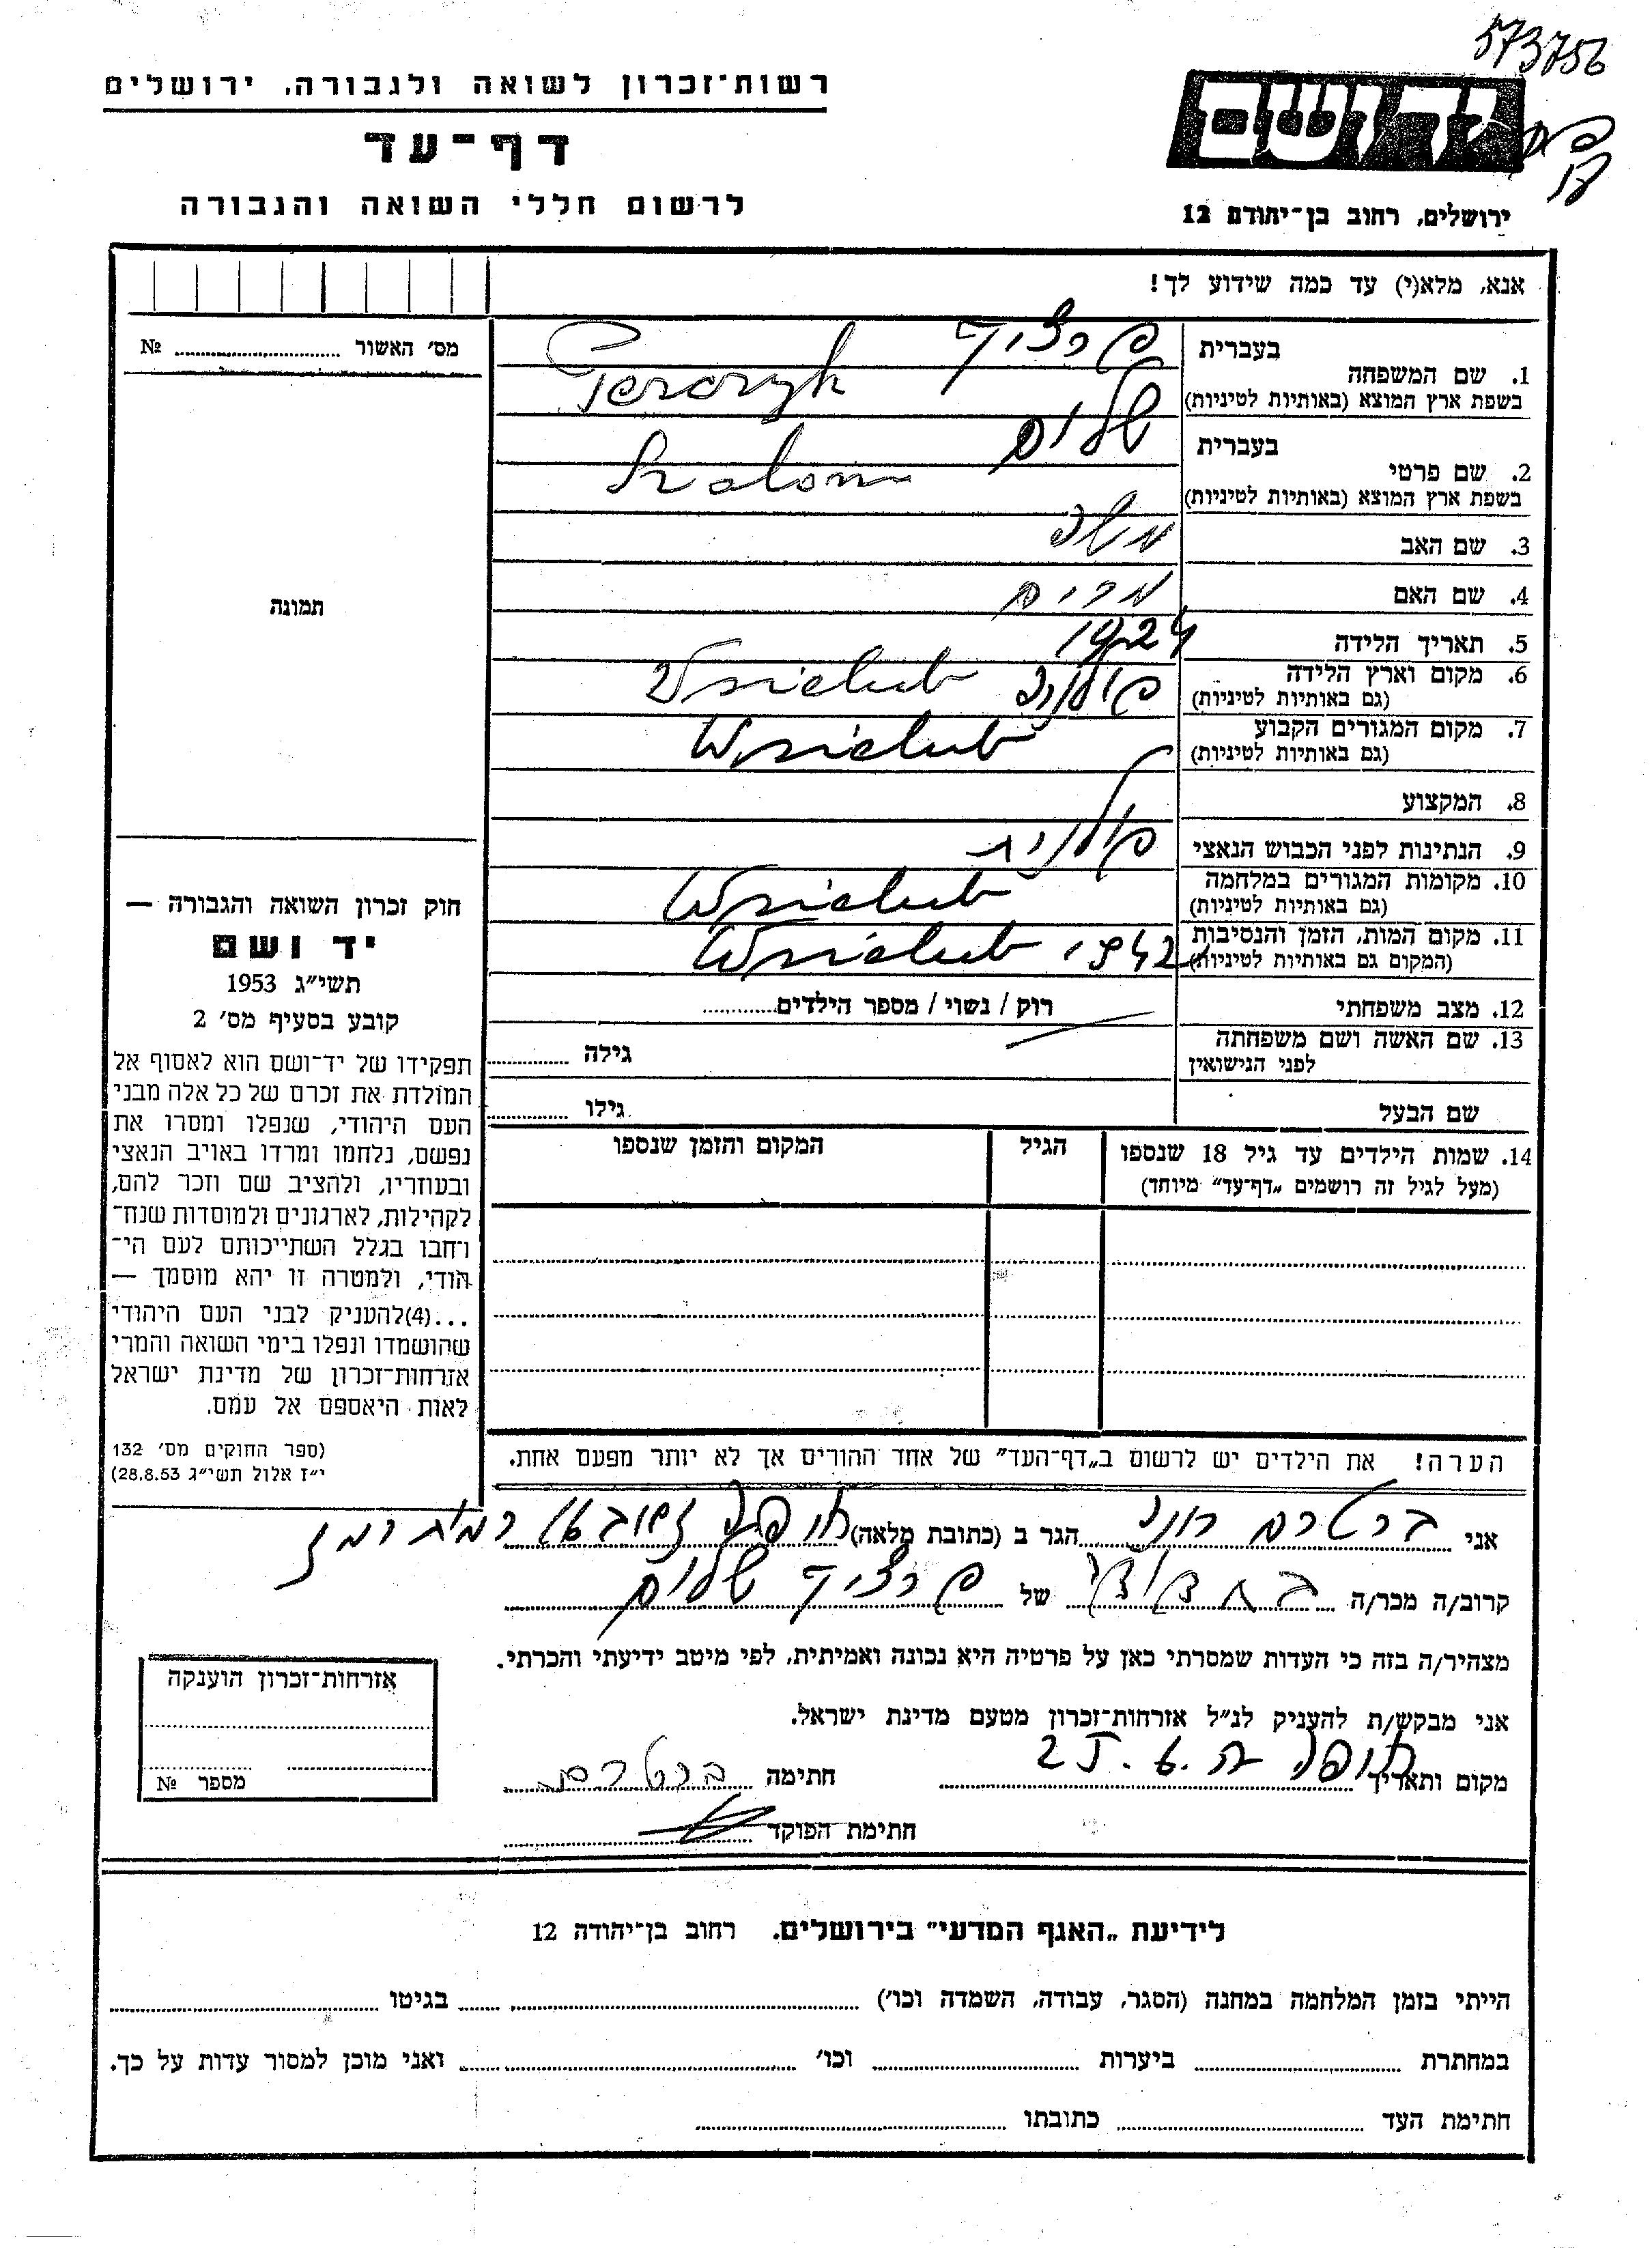 573756
רשות־זכרון לשואה ולגבורה, ירושלים
דף־עד
לרשום חללי השואה והגבורה
יד ושם
ירושלים, רחוב בן־יהודה 12
אנא, מלא(י) עד כמה שידוע לך!
מס׳ האשור ............ №
תמונה
1. שם המשפחה
בעברית פרציק
בשפת ארץ המוצא (באותיות לטיניות) Perczyk
2. שם פרטי
בעברית שלום
בשפת ארץ המוצא (באותיות לטיניות) Szalom
3. שם האב משה
4. שם האם מרים
5. תאריך הלידה 1924
6. מקום וארץ הלידה פולניה Wsielub
(גם באותיות לטיניות)
7. מקום המגורים הקבוע Wsielub
(גם באותיות לטיניות)
8. המקצוע
9. הנתינות לפני הכבוש הנאצי פולנית
10. מקומות המגורים במלחמה Wsielub
(גם באותיות לטיניות)
11. מקום המות, הזמן והנסיבות 1942 Wsielub
(המקום גם באותיות לטיניות)
12. מצב משפחתי רוק / נשוי / מספר הילדים............
13. שם האשה ושם משפחתה
לפני הנישואין גילה ............
שם הבעל גילו ............
14. שמות הילדים עד גיל 18 שנספו הגיל המקום והזמן שנספו
(מעל לגיל זה רושמים „דף־עד” מיוחד)
הערה! את הילדים יש לרשום ב„דף־העד” של אחד ההורים אך לא יותר מפעם אחת.
חוק זכרון השואה והגבורה —
יד ושם
תשי״ג 1953
קובע בסעיף מס׳ 2
תפקידו של יד־ושם הוא לאסוף אל
המולדת את זכרם של כל אלה מבני
העם היהודי, שנפלו ומסרו את
נפשם, נלחמו ומרדו באויב הנאצי
ובעוזריו, ולהציב שם וזכר להם,
לקהילות, לארגונים ולמוסדות שנח־
רבו בגלל השתייכותם לעם הי־
הודי, ולמטרה זו יהא מוסמך —
...(4)להעניק לבני העם היהודי
שהושמדו ונפלו בימי השואה והמרי
אזרחות־זכרון של מדינת ישראל
לאות היאספם אל עמם.
(ספר החוקים מס׳ 132
י״ז אלול תשי״ג 28.8.53)
אני ברטרם הגר ב (כתובת מלאה)
קרוב/ה מכר/ה של פרציק שלום
מצהיר/ה בזה כי העדות שמסרתי כאן על פרטיה היא נכונה ואמיתית, לפי מיטב ידיעתי והכרתי.
אני מבקש/ת להעניק לנ״ל אזרחות־זכרון מטעם מדינת ישראל.
מקום ותאריך חתימה ברטרם
חתימת הפוקד
אזרחות־זכרון הוענקה
מספר №
לידיעת „האגף המדעי” בירושלים, רחוב בן־יהודה 12
הייתי בזמן המלחמה במחנה (הסגר, עבודה, השמדה וכו׳) ............ בגיטו ............
במחתרת ............ ביערות ............ וכו׳ ............ ואני מוכן למסור עדות על כך.
חתימת העד ............ כתובתו ............